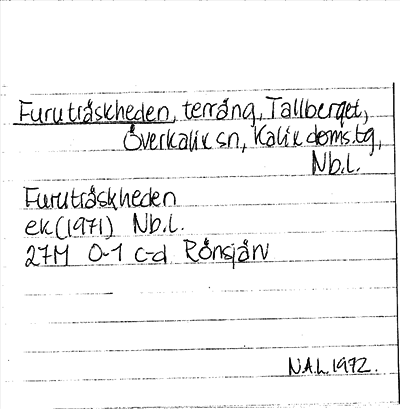 Furuträskheden, terräng, Tallberget,
Överkalix sn, Kalix doms.tg,
Nb.l.
Furuträskheden
ek(1971) Nb.l.
27M 0-1 c-d Rönsjärv
N.A.L. 1972.